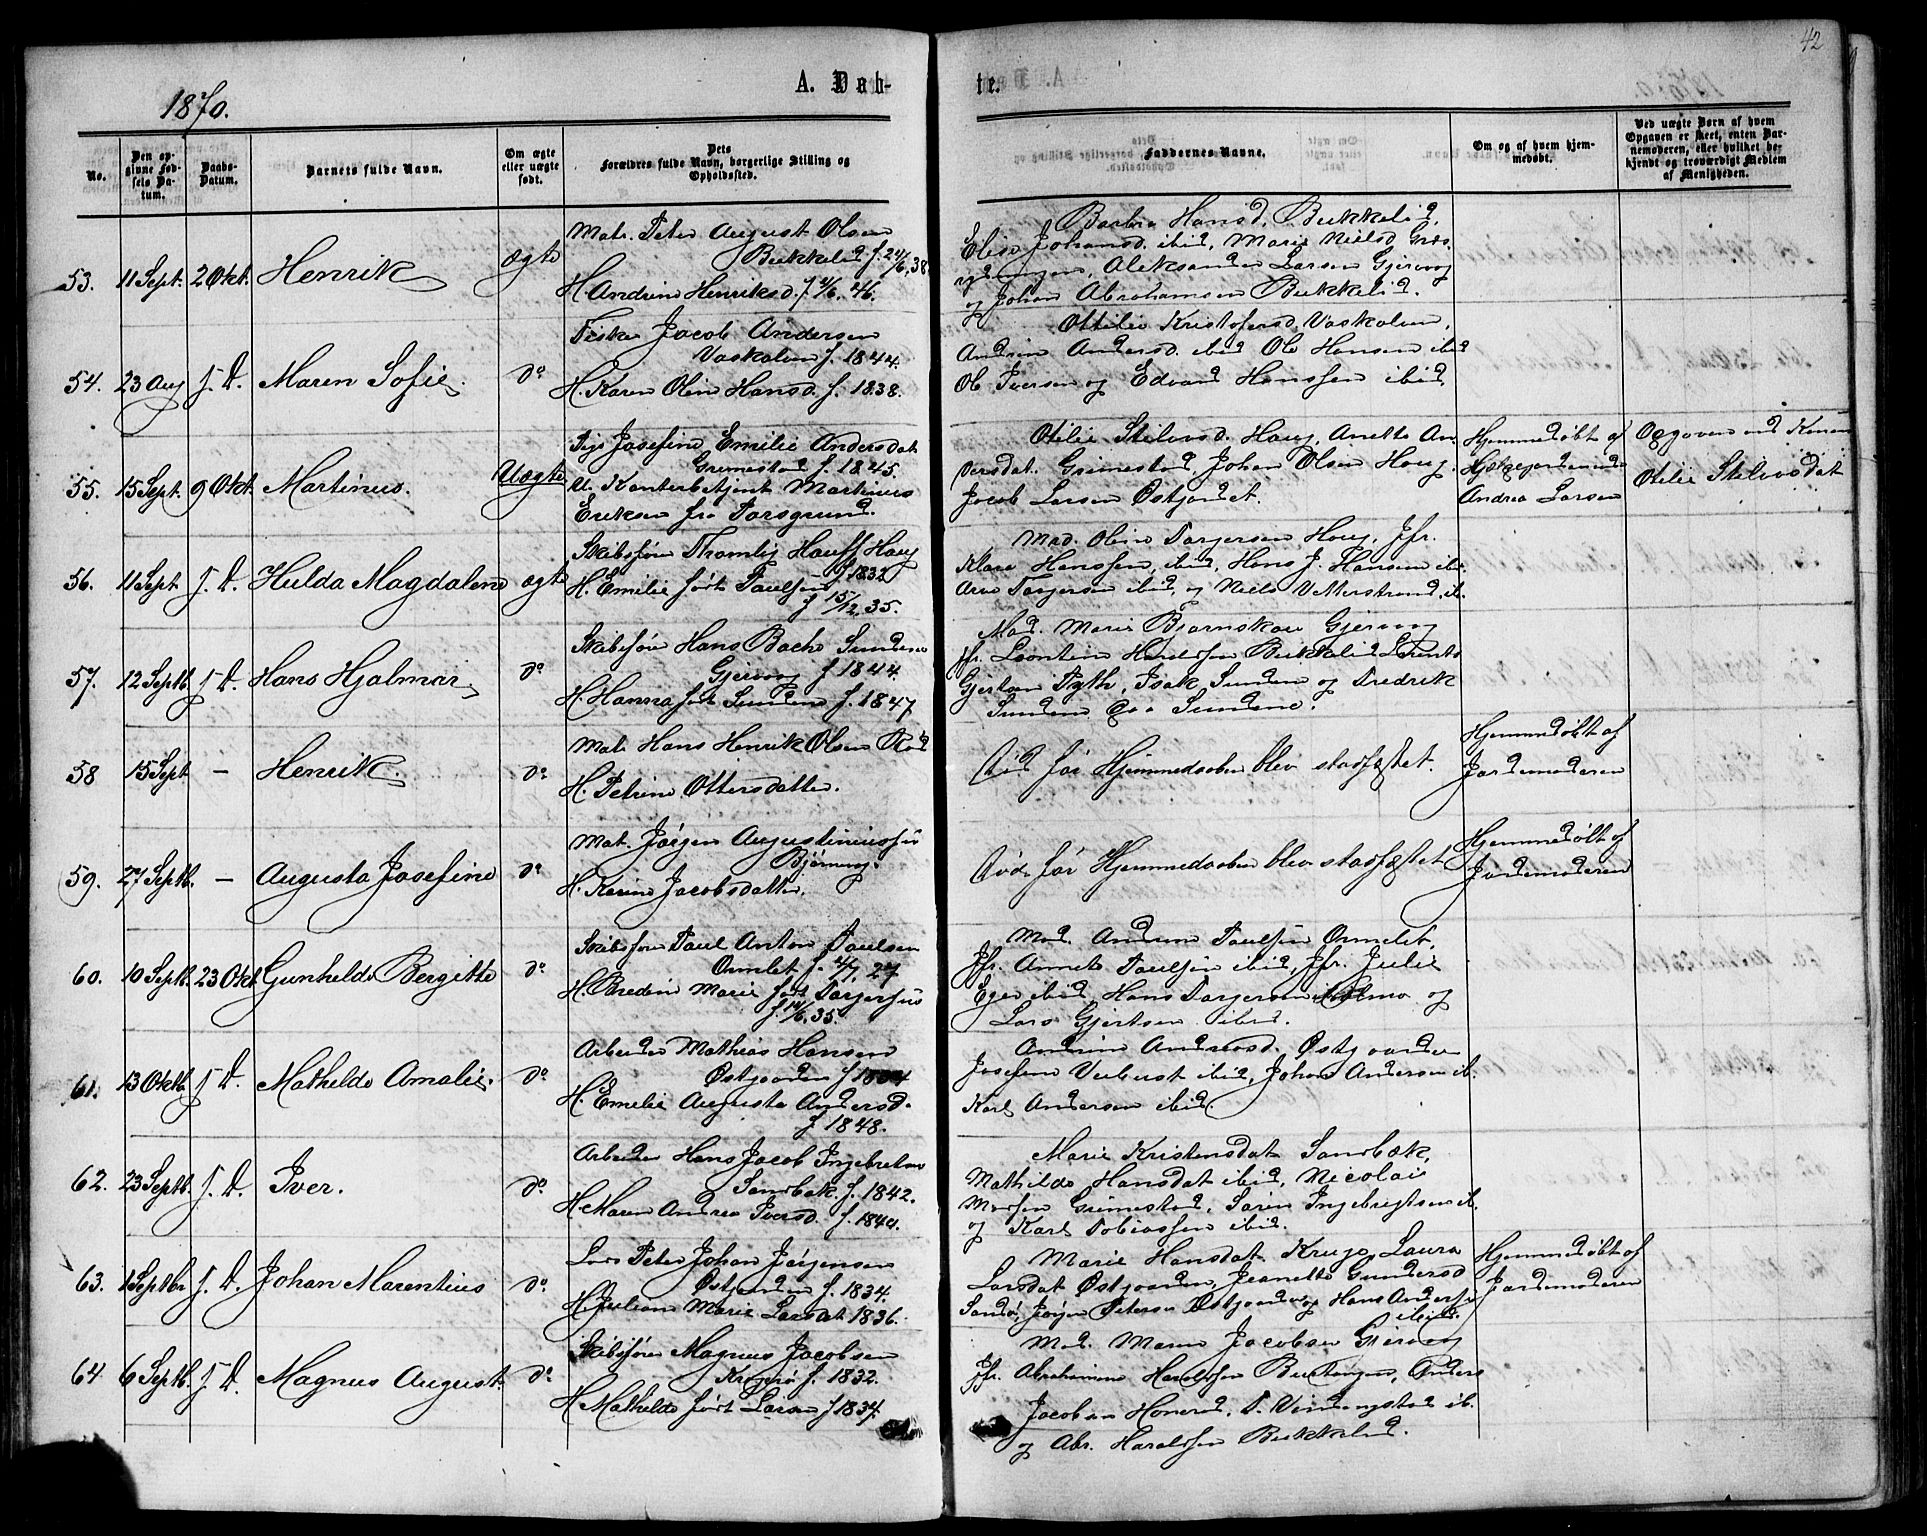 42
1870.
A. Dab-
te.
No.
Den op-
givne Fød-
sels Da-
tum.
Daabs-
Datum.
Barnets fulde Navn.
Om ægte
eller uægte
født.
Dets
Forældres fulde Navn, borgerlige Stilling og
Opholdssted.
Faddernes Navne.
Om og af hvem hjem-
medøbt.
Ved uægte Børn af hvem
Opgaven er skeet, enten Bar-
nemoderen, eller hvilket be-
kjendt og troværdigt Medlem
af Menigheden.
53. 11 Sept. 2 Okt. Henrik ægte
Matr. Peter August Olsen
Bukkelid f. 24/6, 38
H. Andrine Henriksd. f. 46.
Barbra Hansd. Bukkelid,
Elise Johansd. ibid, Marie Nielsd
Aleksander Larsen Gjervog
og Johan Abrahamsen Bukkelid.
54. 23 Aug s. D. Maren Sofie. do
Fisker Jacob Andersen
Vaskalven f. 1844.
H. Karen Oline Hansd. f. 1838.
Ottilie Kristofersd. Vaskalven,
Andrine Andersd. ibid Ole Hansen ibid
Ole Iversen og Edvard Hanssen ibid
55. 15 Sept. 9 Okt. Martinus. Uægte
Pige Josefine Emilie Andersdat
Grimestad f. 1845.
U. Kontorbetjent Martinus
Eriksen fra Porsgrund.
Otilie Stilovsd. Haug, Anette An-
dersdat. Grimestad, Johan Olsen Haug.
Jacob Larsen Østgordet.
Hjemmedøbt af
Andrea Larsen
Opgaven ved Konen
Otilie Stilovsdat
56. 11 Sept s. D. Hulda Magdalene ægte
Skibsfører Thomlef Hauff Haug
f. 1832
H. Emilie født Paulsen
f 15/12, 35.
Mad. Oline Torgersen Haug, Jfr.
Klara Hanssen, ibid, Hans J. Hansen ibi.
Torgersen ibid, og Niels Vetterstrand, ib.
57. 12 Septb. s. D. Hans Hjalmar. do
Skibsfører Hans Bache Sundene
Gjervog f 1844.
H. Hanna født Sundene f. 1847
Mad. Marie Bjørnskau Gjervog
Jfr. Leontine Haraldsen Bukkelid Lorents
Gjertsen Pyth, Isak Sundene og Fredrik
Sundene Sundene.
58 15 Sept – Henrik. do
Matr. Hans Henrik Olsen Rød
H. Petrine Ottersdatter.
Død før Hjemmedaaben blev stadfæstet.
Hjemmedøbt af
Jordemoderen
59. 27 Septb. – Augusta Josefine do
Mat. Jørgen Augustiniussen
Bjørning.
H. Karine Jacobsdatter.
Død før Hjemmedaaben blev stadfæstet
Hjemmedøbt af
Jordemoderen
60. 10 Septb. 23 Okt Gunhilde Bergitte do
Skibsfører Paul Anton Paulsen
Ormlet f. 4/7, 27
H. Bredine Marie født Torgersen
f. 14/6, 35.
Mad. Andrine Paulsen Ormlet,
Jfr. Annete Paulsen ibid, Jfr. Julie
Eger ibid, Hans Torgersen og
Lars Gjertsen ibid.
61. 13 Oktb. s. D. Mathilde Amalie. do
Arbeider Mathias Hansen
Østgaarden f 1834
H. Emilie Augusta Andersd.
f 1848.
Andrine Andreasd. Østgaarden
Josefine ibid, Johan Andersen ib.
Karl Andersen ibid.
62. 23 Septb. s. D. Iver. do
Arbeider Hans Jacob Ingebretsen
Sandbæk. f. 1842.
H. Maren Andrea Iversd. f. 1840.
Marie Kristensdat Sandbæk,
Mathilde Hansdat ibid, Nicolai
Grimestad, Søren Ingebrigtsen ib.
og Karl Tobiassen ibid.
63. 1 Septbr s. D. Johan Marentius do
Lods Peter Johan Jørgensen
Østgaarden f. 1834.
H. Juliane Marie Larsdat 1836.
Marie Hansdat Kruge, Laura
Larsdat Østgaarden, Jeanette Gundersd
Sandø, Jørgen Petersen Østgaarden og Hans Andersen
ibid.
Hjemmedøbt af
Jordemoderen
64 6 Septb. s. D. Magnus August. do
Skibsfører Magnus Jacobsen
f. 1832.
H Mathilde født Larsen f 1834.
Mad. Maren Jacobsen Gjervog
Jfr. Abrahamine Haraldsen Anders
Jacobsen ib.
og Abr. Haraldsen Bukkelid.